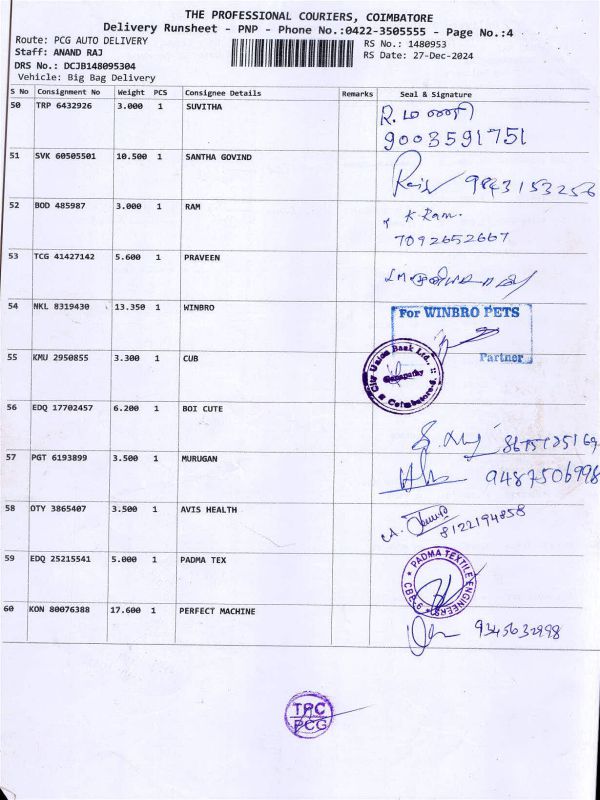 THE PROFESSIONAL COURIERS, COIMBATORE
Delivery Runsheet - PNP - Phone No.:0422-3505555 - Page No.:4
Route: PCG AUTO DELIVERY
RS No.: 1480953
Staff: ANAND RAJ
RS Date: 27-Dec-2024
DRS No.: DCJB148095304
Vehicle: Big Bag Delivery
S No Consignment No Weight PCS Consignee Details Remarks Seal & Signature
50 TRP 6432926 3.000 1 SUVITHA
9003591751
51 SVK 60505501 10.500 1 SANTHA GOVIND
9843153256
52 BOD 485987 3.000 1 RAM K Ram.
7092652667
53 TCG 41427142 5.600 1 PRAVEEN
54 NKL 8319430 13.350 1 WINBRO For WINBRO PETS
Partner
55 KMU 2950855 3.300 1 CUB City Union Bank Ltd.,
Ganapathy
Coimbatore-6
56 EDQ 17702457 6.200 1 BOI CUTE
57 PGT 6193899 3.500 1 MURUGAN 9487506998
58 OTY 3865407 3.500 1 AVIS HEALTH 8122194858
59 EDQ 25215541 5.000 1 PADMA TEX PADMA TEXTILE ENGINEERS
CBE-6
60 KON 80076388 17.600 1 PERFECT MACHINE 9345632998
TPC
PCG